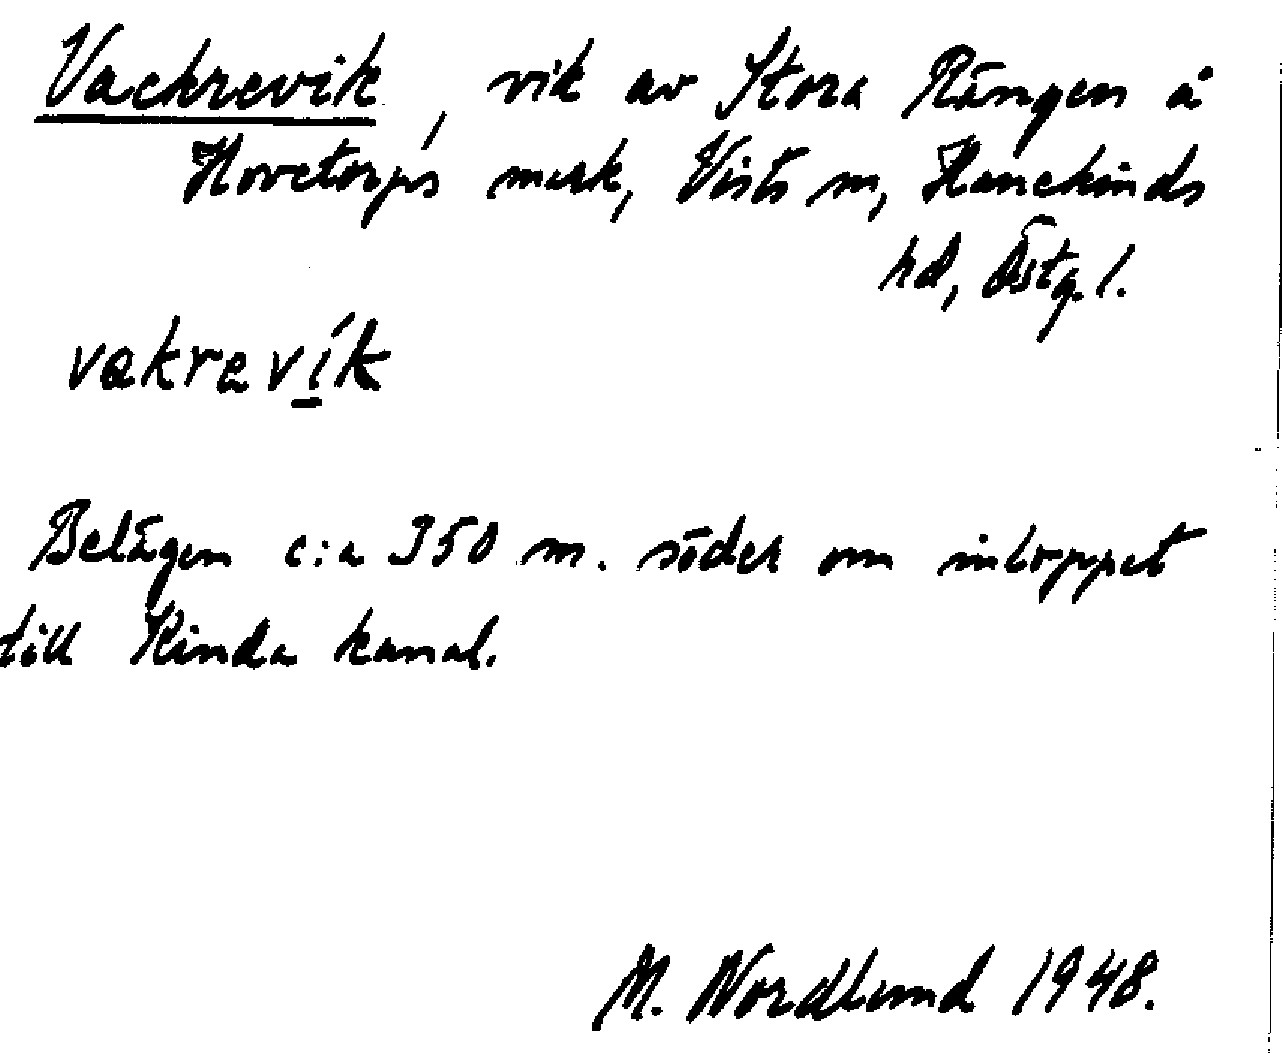 Vackrevik, vik av Stora Rängen å
Hovetorps mark, Vists sn, Hanekinds
hd, Östg. l.
vakravík
Belägen c:a 350 m. söder om inloppet
till Kinda kanal.
M. Nordlund 1948.